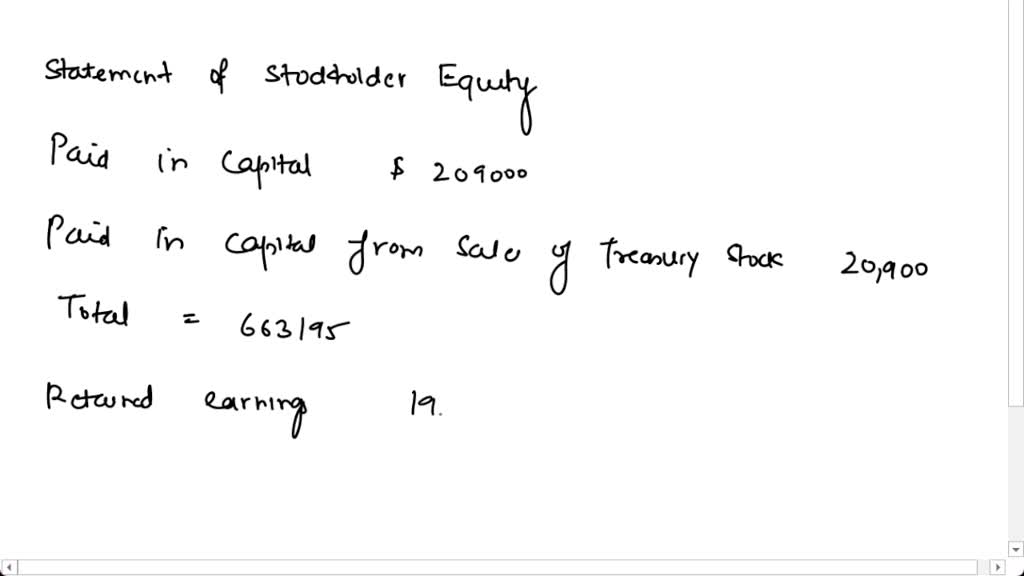 Statement of Stockholder Equity
Paid in Capital $ 209000
Paid in capital from Sale of Treasury Stock 20,900
Total = 663195
Retained earning 19.